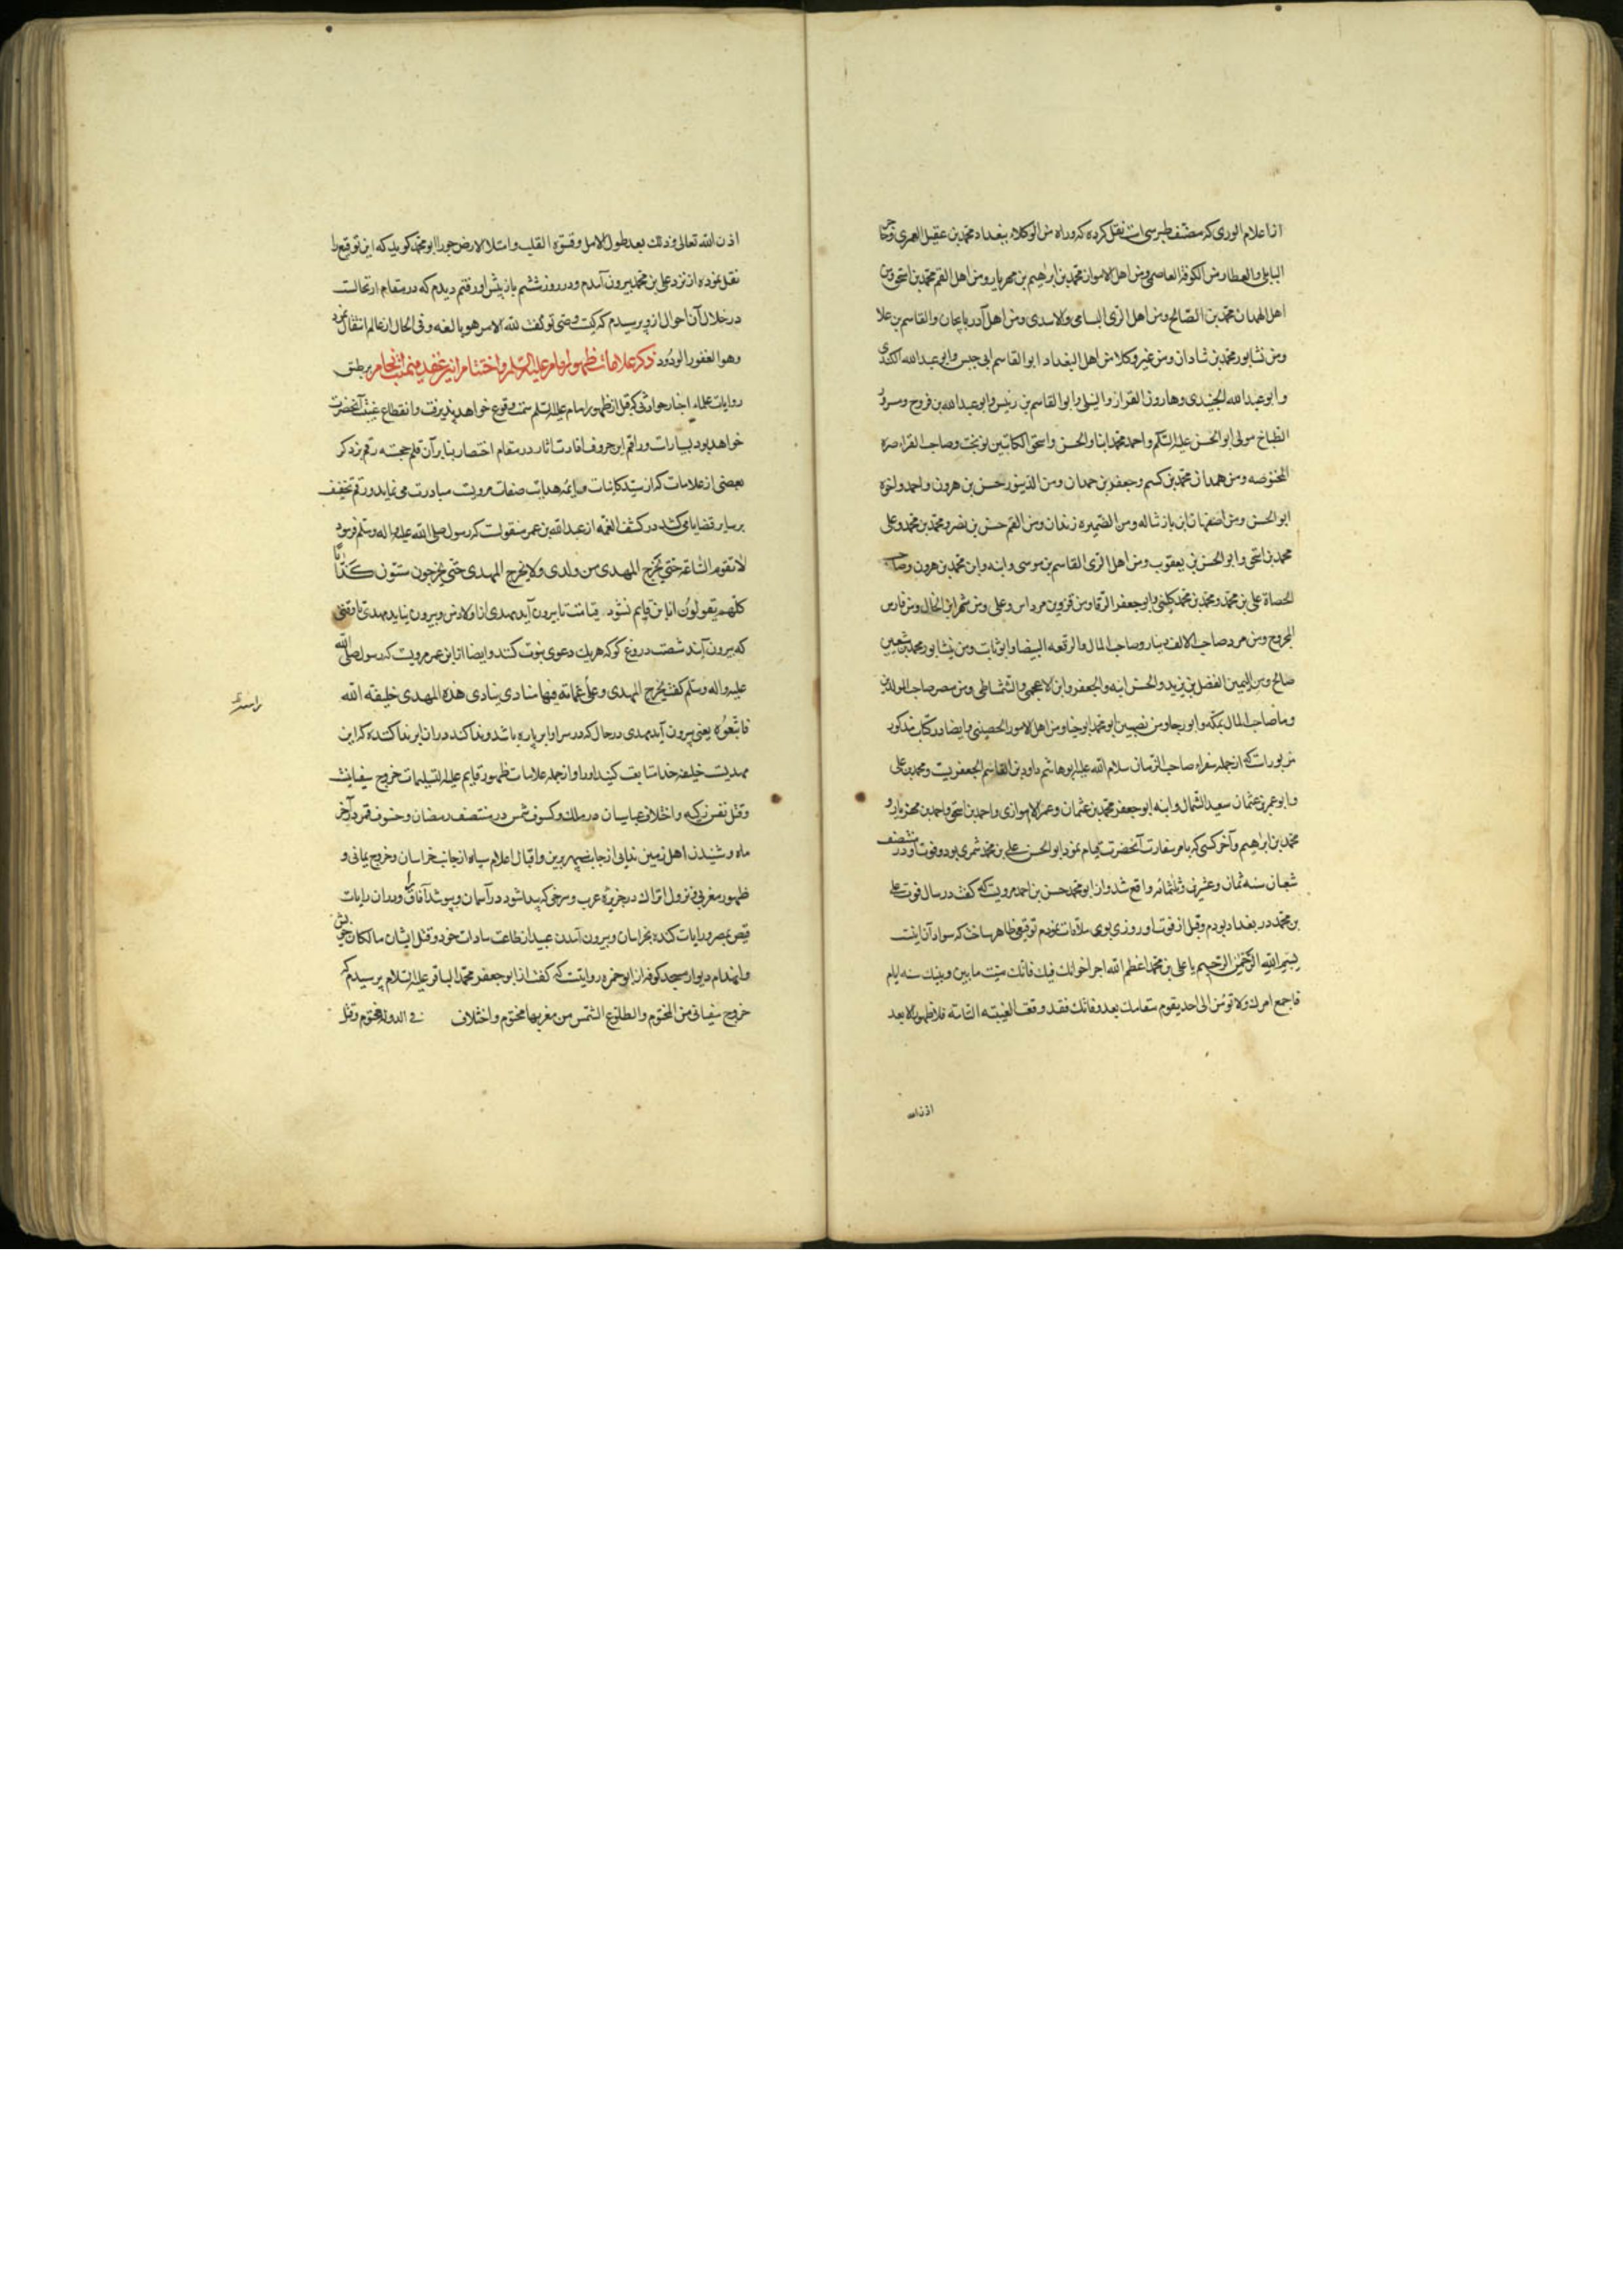 از اعلام الوری که مصنف طبرسی است نقل کرده که وراه من الوکلاء ببغداد محمد بن عقیل العمری و
البابلی والعطار من الکوفة العاصمی ومن اهل الاهواز محمد بن ابرهیم بن مهریار ومن اهل القم محمد بن اسحق ومن
اهل الهمدان محمد بن الصالح ومن اهل الری البسامی والاسدی ومن اهل آدربایجان والقاسم بن علا
ومن نشابور محمد بن شادان ومن غیر وکلا من اهل البغداد ابو القاسم ابی حبس وابو عبد الله الکندی
و ابو عبد الله الجنیدی وهارون القزاز والنیلی وابو القاسم بن رئیس وابو عبد الله بن فروخ ومسرور
الطباخ مولی ابو الحسن علیه السلم واحمد محمد ابنا والحسن واسحق الکاتبین نوبخت وصاحب الفراء صره
المختوصه ومن همدان محمد بن کسم وجعفر بن حمدان ومن الدینور حسن بن هرون واحمد واخوه
ابو الحسن ومن اصفهان ابن باز شاله ومن الضمیره زندان ومن القم حسن بن نصر ومحمد بن محمد وعلی
محمد بن اسحق وابو الحسن بن یعقوب ومن اهل الری القاسم بن موسی وابنه وابن محمد بن هرون وصاحب
الحصاة علی بن محمد ومحمد بن محمد کلینی وابو جعفر الرفا ومن قزوین مرداس وعلی ومن شهر ابن الخال ومن فارس
المجروح ومن مرو صاحب الالف دینار وصاحب المال والرقعه البیضا وابو ثابت ومن نیشابور محمد بن شعیب
صالح ومن الیمین الفضل بن یزید والحسن ابنه والجعفر وابن الاعجمی والشمشاطی ومن مصر صاحب المولدین
وما صاحب المال بمکه وابو رجا ومن نصیبین ابو محمد ابو جنا ومن اهل الامور الحصینی وایضا در کتاب مذکور
مزبور است که از جمله سفراء صاحب الزمان سلام الله علیه ابو هاشم داود بن القاسم الجعفریست ومحمد بن علی
و ابو عمر بن عثمان سعید الشمال وابنه ابو جعفر محمد بن عثمان وعمر الاهوازی واحمد بن اسحق واحمد بن مهزیار و
محمد بن ابراهیم وآخر کسی که بامر سفارت آنحضرت قیام نمود ابو الحسن علی بن محمد شمری بود وفوت او در منتصف
شعبان سنه ثمان وعشرین وثلثمائه واقع شد واز ابو محمد حسن بن احمد مرویست که گفت در سال فوت علی
بن محمد در بغداد بودم وقبل از فوت او روزی بوی ملاقات نمودم توقیعی ظاهر ساخت که سواد آن اینست
بسم الله الرحمن الرحیم یا علی بن محمد اعظم الله اجر اخوانک فیک فانک میت ما بین وبینک سته ایام
فاجمع امرک ولا توص الی احد یقوم مقامک بعد وفاتک فقد وقعت الغیبته التامة فلا ظهور الا بعد
اذن الله
اذن الله تعالی وذلک بعد طول الامل وقسوة القلب وامتلا الارض جورا ابو محمد کوید که این توقیع را
نقل نموده از نزد علی بن محمد بیرون آمدم ودر روز ششم باز پیش او رفتم دیدم که در مقام ارتحالست
در خلال آن احوال ازو پرسیدم که کیست وصی تو گفت لله الامر هو بالغه وفی الحال از عالم انتقال نمود
وهو الغفور الودود ذکر علامات ظهور امام علیه السلم واختتام بر طبق
روایات علماء اخبار حوادثی که قبل از ظهور امام علیه السلم سمت وقوع خواهد پذیرفت وانقطاع غیبت آنحضرت
خواهد بود بسیارات وراقم این حروف افادت اثار در مقام اختصار بنابر آن قلم حجسته رقم بذکر
بعضی از علامات که از سید کاینات وایمه هدایت صفات مرویست مبادرت می نماید ورقم تخفیف
بر سایر قضایا می کشد در کشف الغمه از عبد الله بن عمر منقولست که رسول صلی الله علیه واله وسلم فرمود
لا تقوم الساعة حتی یخرج المهدی من ولدی ولا یخرج المهدی حتی یخرجون ستون کذابا
کلهم یقولون انا بن قایم نشود قیامت تا بیرون آید مهدی از اولاد من وبیرون نیاید مهدی تا وقتی
که بیرون آیند شصت دروغ کو که هر یک دعوی نبوت کنند وایضا از ابن عمر مرویست که رسول صلی الله
علیه واله وسلم گفت یخرج المهدی وعلی غمامة فیها منادی ینادی هذه المهدی خلیفة الله
فاتبعوه یعنی بیرون آید مهدی در حال که در سر او ابر پاره باشد وندا کند در ان ابر ندا کننده که این
مهدیست خلیفه خدا متابعت کنید او را واز جمله علامات ظهور قایم علیه التسلیمات خروج سفیانیست
وقتل نفس زکیه واختلاف عباسیان در ملک وکسوف شمس در منتصف رمضان وخسوف قمر در آخر
ماه وشنیدن اهل زمین ندایی از جانب سپهر برین واقبال اعلام سیاه از جانب خراسان وخروج یمانی و
ظهور مغربی ونزول اتراک در جزیره عرب وسرخی که پیدا شود در آسمان وبپوشد آفاق را ودران رایات
قیص بمصر ورایات کنده بخراسان وبیرون آمدن عبید از طاعت سادات خود وقتل ایشان مالکان خویش
وانهدام دیوار مسجد کوفه از ابو حمزه روایتست که گفت از ابو جعفر محمد الباقر علیه السلام پرسیدم که
خروج سفیانی من المحتوم والطلوع الشمس من مغربها محتوم واختلاف فی الدوله محتوم وقتل